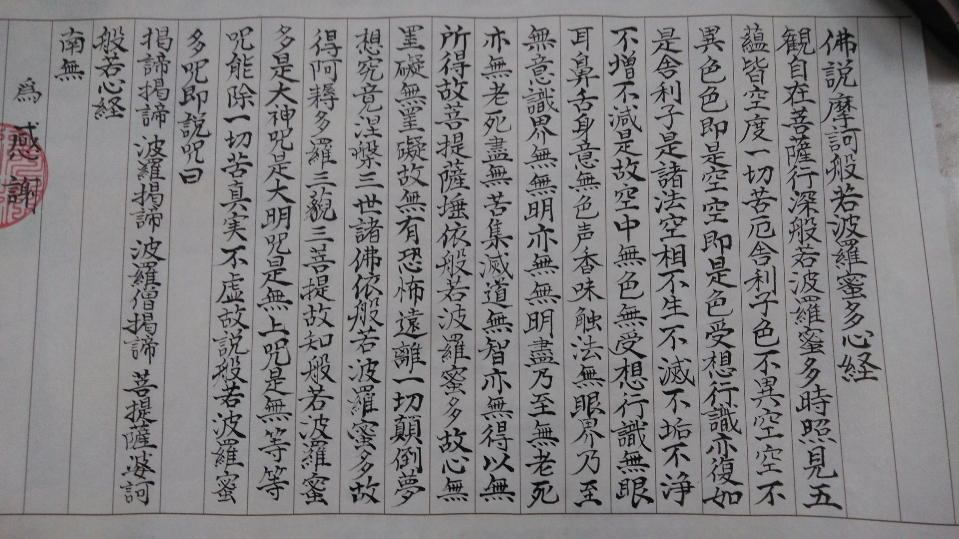 佛説摩訶般若波羅蜜多心経
観自在菩薩行深般若波羅蜜多時照見五
蘊皆空度一切苦厄舎利子色不異空空不
異色色即是空空即是色受想行識亦復如
是舎利子是諸法空相不生不滅不垢不浄
不増不減是故空中無色無受想行識無眼
耳鼻舌身意無色声香味触法無眼界乃至
無意識界無無明亦無無明盡乃至無老死
亦無老死盡無苦集滅道無智亦無得以無
所得故菩提薩埵依般若波羅蜜多故心無
罣礙無罣礙故無有恐怖遠離一切顛倒夢
想究竟涅槃三世諸佛依般若波羅蜜多故
得阿耨多羅三藐三菩提故知般若波羅蜜
多是大神呪是大明呪是無上呪是無等等
呪能除一切苦真実不虚故説般若波羅蜜
多呪即説呪曰
掲諦掲諦 波羅掲諦 波羅僧掲諦 菩提薩婆訶
般若心経
南無
為 感謝